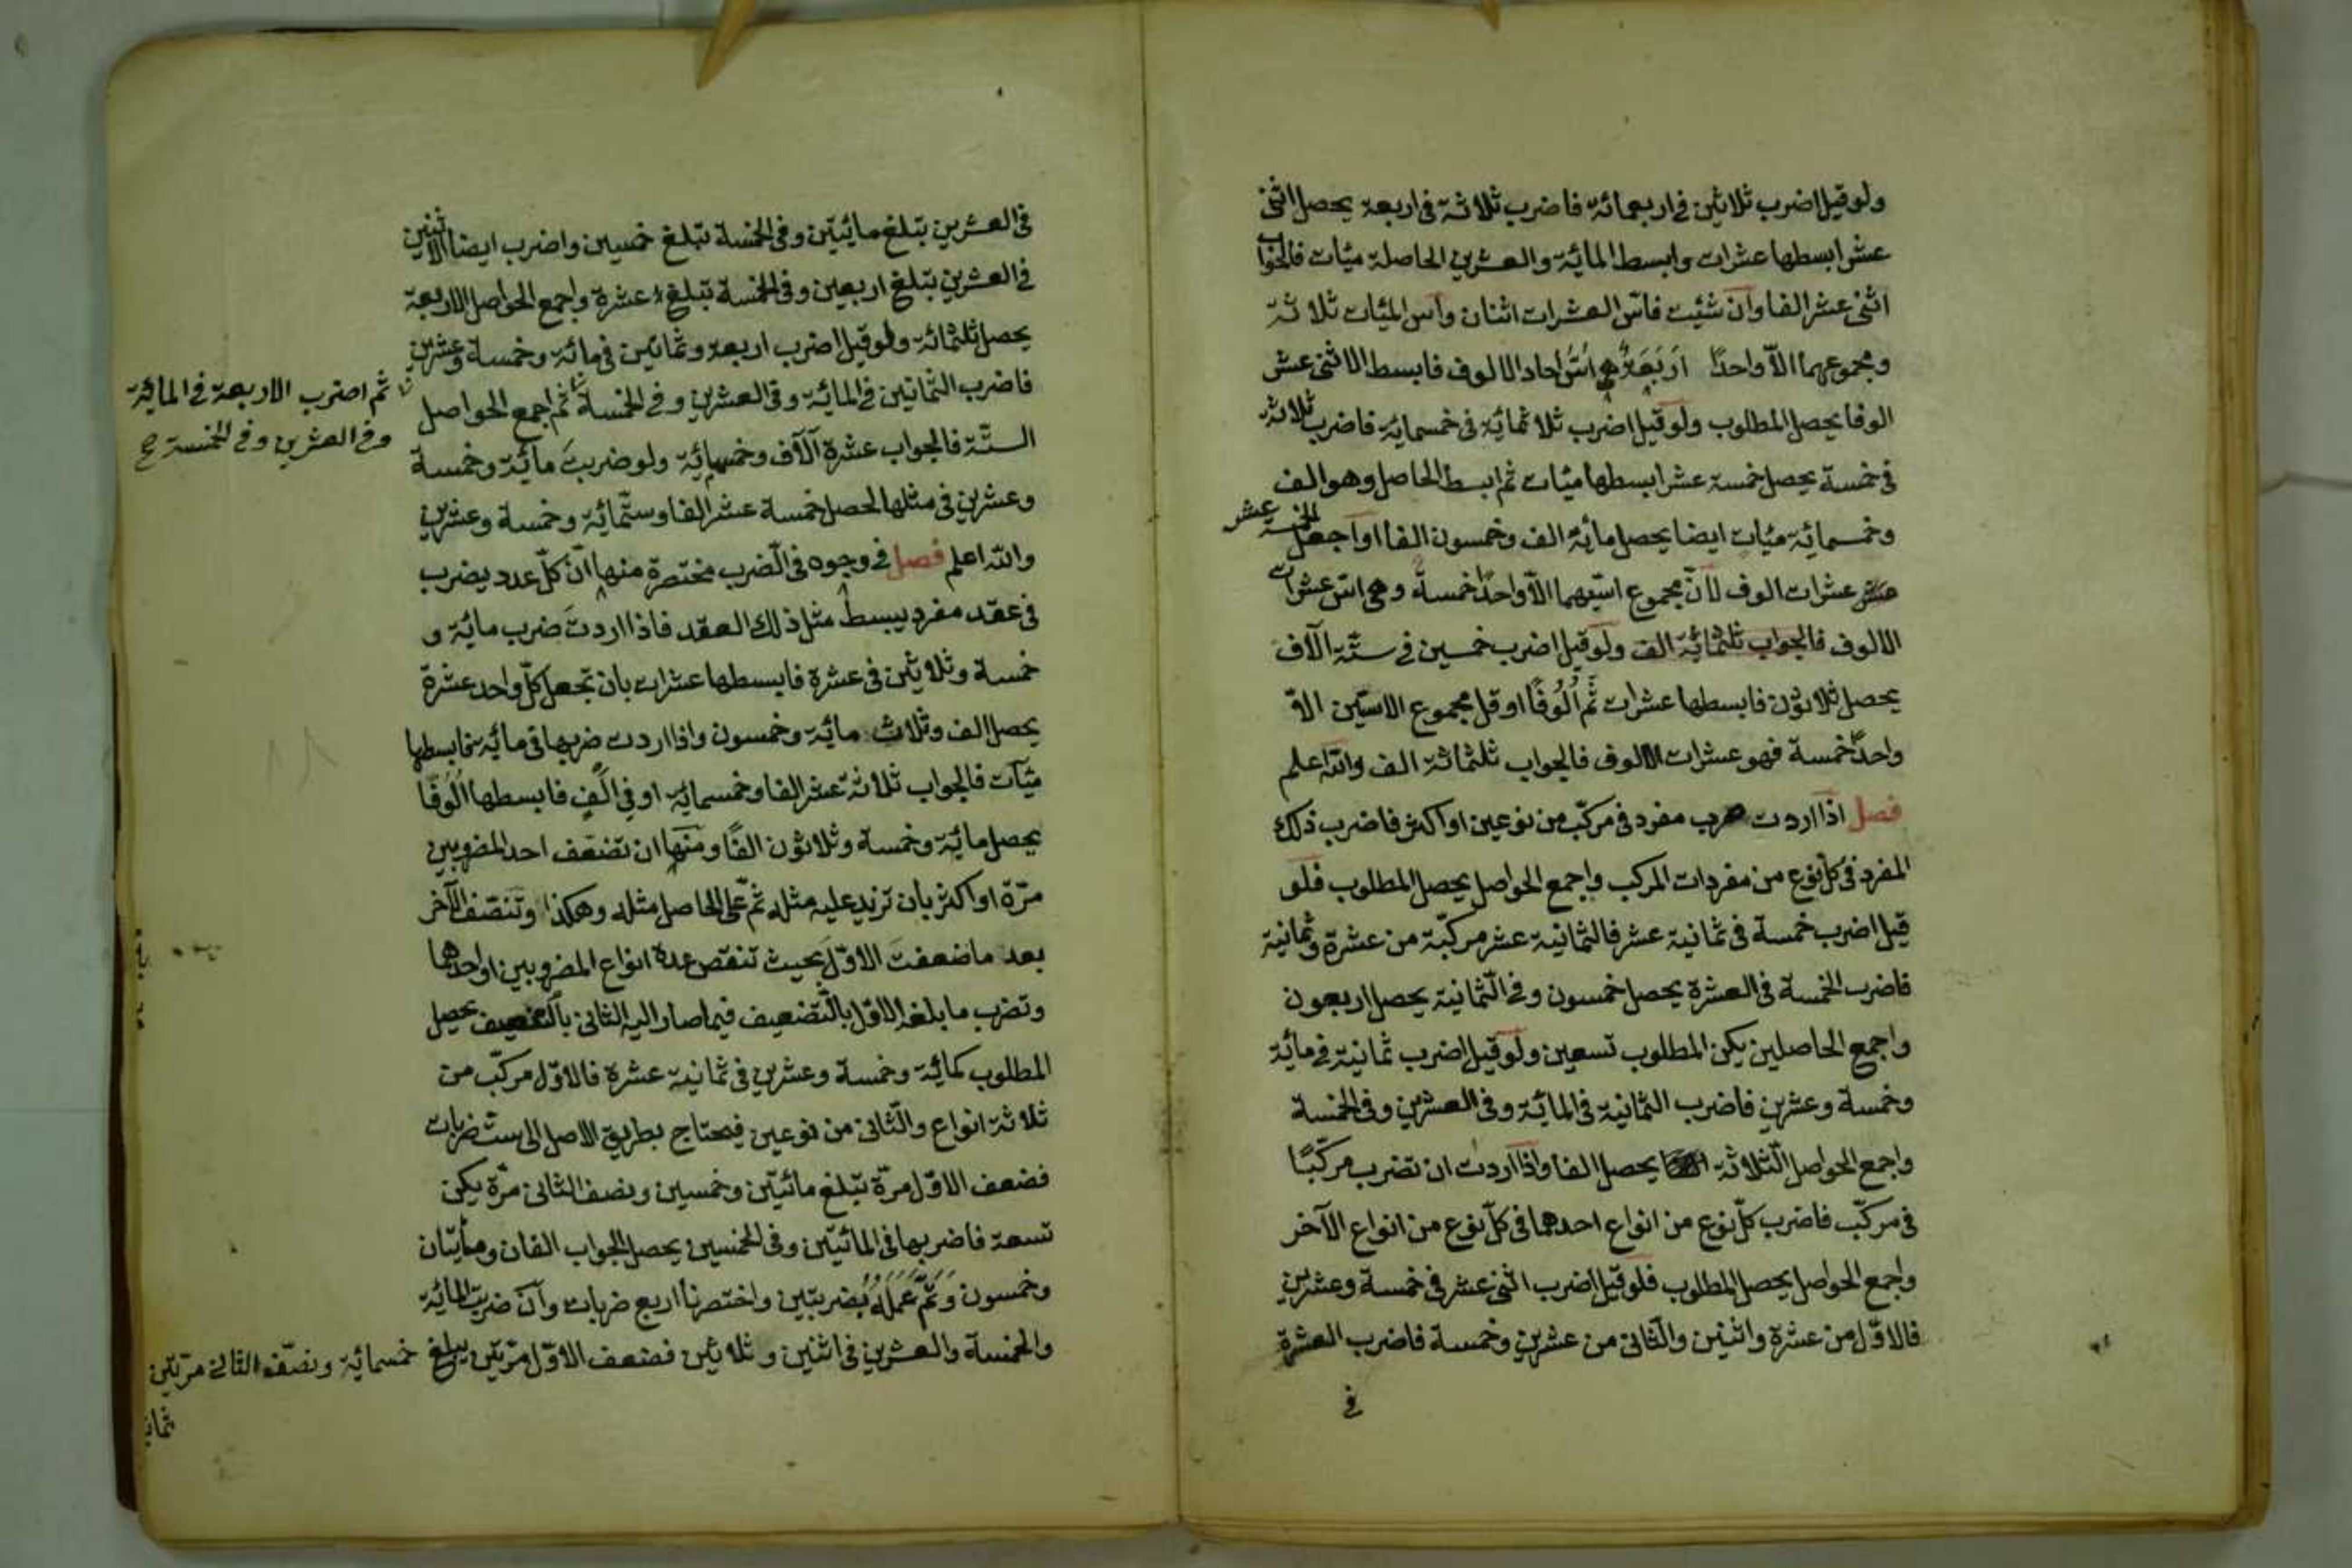 ولو قيل اضرب ثلاثين فى اربعمائة فاضرب ثلاثة فى اربعة يحصل اثنى
عشر ابسطها عشرات وابسط المائة والعشرين الحاصلة ميات فالجواب
اثنى عشر الفا وان شئت فاس العشرات اثنان واس الميات ثلاثة
ومجموعهما الا واحدًا اربعة هى اس احاد الالوف فابسط الاثنى عشر
الوفا يحصل المطلوب ولو قيل اضرب ثلاثمائة فى خمسمائة فاضرب ثلاثة
فى خمسة يحصل خمسة عشر ابسطها ميات ثم ابسط الحاصل وهو الف
وخمسمائة ميات ايضا يحصل مائة الف وخمسون الفا او اجعل الخمسة عشر
عشرات الوف لان مجموع اسيهما الا واحدًا خمسة وهى اس عشرات
الالوف فالجواب ثلثمائة الف ولو قيل اضرب خمسين فى ستة الآف
يحصل ثلاثون فابسطها عشرات ثم اُلُوفًا او قل مجموع الاسين الا
واحدًا خمسة فهو عشرات الالوف فالجواب ثلثمائة الف والله اعلم
فصل اذا اردت ضرب مفرد فى مركّب من نوعين او اكثر فاضرب ذلك
المفرد فى كل نوع من مفردات المركب واجمع الحواصل يحصل المطلوب فلو
قيل اضرب خمسة فى ثمانية عشر فالثمانية عشر مركّبة من عشرة وثمانية
فاضرب الخمسة فى العشرة يحصل خمسون وفى الثّمانية يحصل اربعون
واجمع الحاصلين يكن المطلوب تسعين ولو قيل اضرب ثمانية فى مائة
وخمسة وعشرين فاضرب الثمانية فى المائة وفى العشرين وفى الخمسة
واجمع الحواصل الثّلاثة يحصل الفا واذا اردت ان تضرب مركّبًا
فى مركّب فاضرب كلّ نوع من انواع احدهما فى كلّ نوع من انواع الآخر
واجمع الحواصل يحصل المطلوب فلو قيل اضرب اثنى عشر فى خمسة وعشرين
فالاوّل من عشرة واثنين والثّانى من عشرين وخمسة فاضرب العشرة
فى
فى العشرين تبلغ مائيتين وفى الخمسة تبلغ خمسين واضرب ايضا الاثنين
فى العشرين تبلغ اربعين وفى الخمسة تبلغ عشرة واجمع الحواصل الاربعة
يحصل ثلثمائة ولو قيل اضرب اربعة وثمانين فى مائة وخمسة وعشرين
فاضرب الثمانين فى المائة وفى العشرين وفى الخمسة ثم اجمع الحواصل
ثم اضرب الاربعة فى المائة
وفى العشرين وفى الخمسة صح
الستّة فالجواب عشرة آلآف وخمسمائة ولو ضربت مائة وخمسة
وعشرين فى مثلها لحصل خمسة عشر الفا وستّمائة وخمسة وعشرين
والله اعلم فصل فى وجوه فى الضّرب مختصرة منها انّ كلّ عدد يضرب
فى عقد مفرد يبسط مثل ذلك العقد فاذا اردت ضرب مائة و
خمسة وثلاثين فى عشرة فابسطها عشرات بان تجعل كلّ واحد عشرة
يحصل الف وثلاث مائة وخمسون واذا اردت ضربها فى مائة فابسطها
ميآت فالجواب ثلاثة عشر الفا وخمسمائة او فى اَلْفٍ فابسطها اُلُوفًا
يحصل مائة وخمسة وثلاثون الفًا ومنها ان تضعّف احد المضروبين
مرّة او اكثر بان تزيد عليه مثله ثمّ على الحاصل مثله وهكذا وتنصّف الآخر
بعد ما ضعفت الاوّل بحيث تنقص عدة انواع المضروبين او احدهما
وتضرب ما بلغه الاوّل بالتّضعيف فيما صار اليه الثانى بالتنصيف يحصل
المطلوب كمائة وخمسة وعشرين فى ثمانية عشرة فالاوّل مركّب من
ثلاثة انواع والثّانى من نوعين فيحتاج بطريق الاصل الى ست ضربات
فضعف الاوّل مرّة تبلغ مائتين وخمسين ونصف الثانى مرّة يكن
تسعة فاضربها فى المائتين وفى الخمسين يحصل الجواب الفان ومائتان
وخمسون وَتَمَّ عَمَلُهُ بضربتين واختصرنا اربع ضربات وان ضربت المائة
والخمسة والعشرين فى اثنين وثلاثين فضعف الاوّل مرّتين يبلغ خمسمائة ونصّف الثانى مرّتين
ثمانية